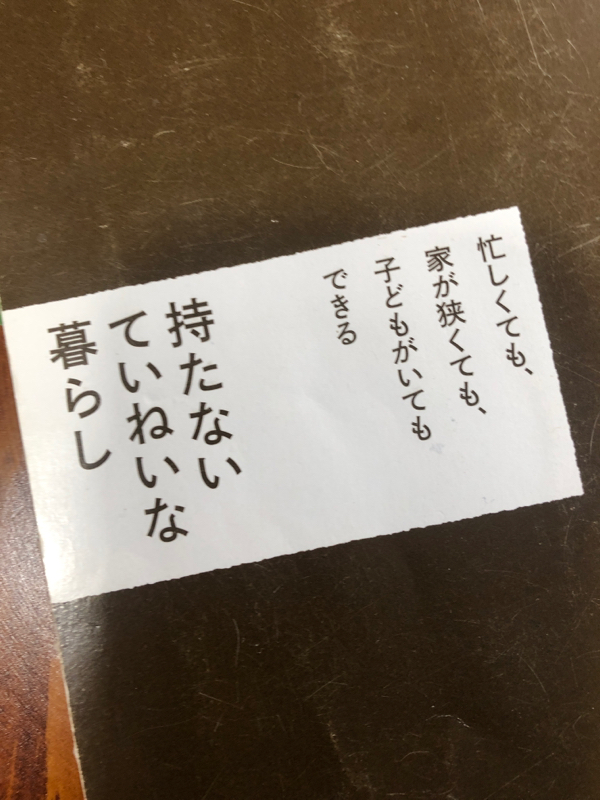 忙しくても、
家が狭くても、
子どもがいても
できる
持たない
ていねいな
暮らし